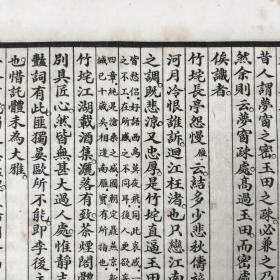 昔人謂夢窗之密玉田之疎必兼之
然余則云夢窗疎處高過玉田而密
俟識者
竹垞長亭怨慢雁云結多少悲秋儔
河月冷恨誰訴迴汀枉渚也只戀江南
之調既悲涼又忠厚是竹垞直過玉田
皆愁侶好西風莫夜飛同此哀感
竹垞江湖載酒集灑落有致茶煙閣體
別具匠心然皆無甚大過人處惟靜志
豔詞有此匪獨晏歐所不能即李後主
也惜託體未為大雅